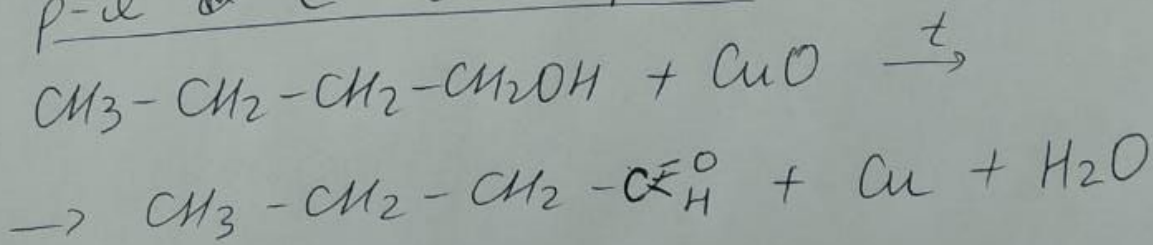 р-я с
CH3 - CH2 - CH2 - CH2OH + CuO t→
→ CH3 - CH2 - CH2 - C=O H + Cu + H2O